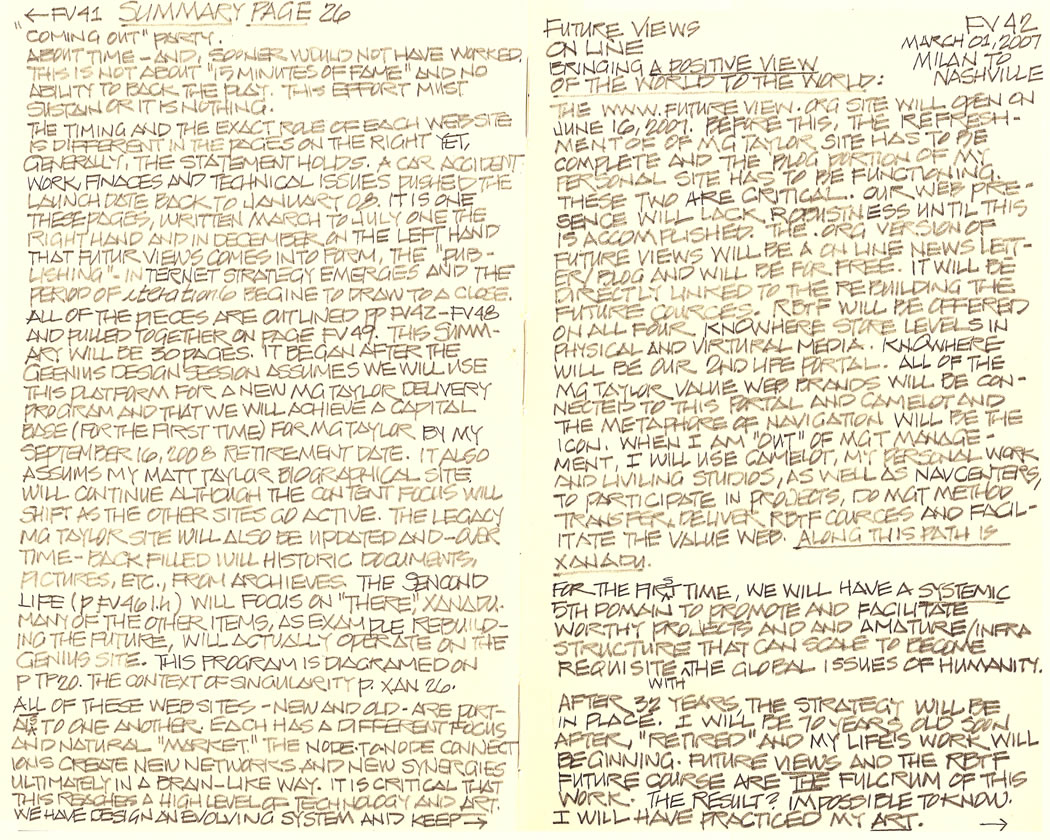 ← FV41 SUMMARY PAGE 26
"COMING OUT" PARTY.
ABOUT TIME - AND, SOONER WOULD NOT HAVE WORKED.
THIS IS NOT ABOUT "15 MINUTES OF FAME" AND NO
ABILITY TO BACK THE PLAY. THIS EFFORT MUST
SUSTAIN OR IT IS NOTHING.
THE TIMING AND THE EXACT ROLE OF EACH WEB SITE
IS DIFFERENT IN THE PAGES ON THE RIGHT YET,
GENERALLY, THE STATEMENT HOLDS. A CAR ACCIDENT
WORK, FINACES AND TECHNICAL ISSUES PUSHED THE
LAUNCH DATE BACK TO JANUARY 08. IT IS ONE
THESE PAGES, WRITTEN MARCH TO JULY ONE THE
RIGHT HAND AND IN DECEMBER ON THE LEFT HAND
THAT FUTUR VIEWS COMES INTO FORM, THE "PUB-
LISHING"- INTERNET STRATEGY EMERGES AND THE
PERIOD OF iteration6 BEGINE TO DRAW TO A CLOSE.
ALL OF THE PIECES ARE OUTLINED PP FV42-FV48
AND PULLED TOGETHER ON PAGE FV49. THIS SUMM-
ARY WILL BE 30 PAGES. IT BEGAN AFTER THE
GEENIUS DESIGN SESSION ASSUMES WE WILL USE
THIS PLATFORM FOR A NEW MG TAYLOR DELIVERY
PROGRAM AND THAT WE WILL ACHIEVE A CAPITAL
BASE (FOR THE FIRST TIME) FOR MG TAYLOR BY MY
SEPTEMBER 16, 2008 RETIREMENT DATE. IT ALSO
ASSUMS MY MATT TAYLOR BIOGRAPHICAL SITE
WILL CONTINUE ALTHOUGH THE CONTENT FOCUS WILL
SHIFT AS THE OTHER SITES GO ACTIVE. THE LEGACY
MG TAYLOR SITE WILL ALSO BE UPDATED AND - OVER
TIME - BACK FILLED WILL HISTORIC DOCUMENTS,
PICTURES, ETC., FROM ARCHIEVES. THE SENCOND
LIFE (P FV46 1.h) WILL FOCUS ON "THERE," XANADU.
MANY OF THE OTHER ITEMS, AS EXAMPLE REBUILD-
ING THE FUTURE, WILL ACTUALLY OPERATE ON THE
GENIUS SITE. THIS PROGRAM IS DIAGRAMED ON
P TP20. THE CONTEXT OF SINGULARITY P. XAN 26.
ALL OF THESE WEB SITES - NEW AND OLD - ARE PORT-
ALS TO ONE ANOTHER. EACH HAS A DIFFERENT FOCUS
AND NATURAL "MARKET." THE NODE-TO-NODE CONNECT
IONS CREATE NEW NETWORKS AND NEW SYNERGIES
ULTIMATELY IN A BRAIN-LIKE WAY. IT IS CRITICAL THAT
THIS REACHES A HIGH LEVEL OF TECHNOLOGY AND ART.
WE HAVE DESIGN AN EVOLVING SYSTEM AND KEEP →
FUTURE VIEWS
ON LINE
BRINGING A POSITIVE VIEW
OF THE WORLD TO THE WORLD:
FV 42
MARCH 01, 2007
MILAN TO
NASHVILLE
THE WWW.FUTURE VIEW.ORG SITE WILL OPEN ON
JUNE 16, 2007. BEFORE THIS, THE REFRESH-
MENT OF OF MG TAYLOR SITE HAS TO BE
COMPLETE AND THE BLOG PORTION OF MY
PERSONAL SITE HAS TO BE FUNCTIONING.
THESE TWO ARE CRITICAL. OUR WEB PRE-
SENCE WILL LACK ROBUSTNESS UNTIL THIS
IS ACCOMPLISHED. THE .ORG VERSION OF
FUTURE VIEWS WILL BE A ON LINE NEWS LETT-
ER/BLOG AND WILL BE FOR FREE. IT WILL BE
DIRECTLY LINKED TO THE REBUILDING THE
FUTURE COURCES. RBTF WILL BE OFFERED
ON ALL FOUR KNOWHERE STORE LEVELS IN
PHYSICAL AND VIRTURAL MEDIA. KNOWHERE
WILL BE OUR 2ND LIFE PORTAL. ALL OF THE
MG TAYLOR VALUE WEB BRANDS WILL BE CON-
NECTED TO THIS PORTAL AND CAMELOT AND
THE METAPHORE OF NAVIGATION WILL BE THE
ICON. WHEN I AM "OUT" OF MGT MANAGE-
MENT, I WILL USE CAMELOT, MY PERSONAL WORK
AND LIVILING STUDIOS, AS WELL AS NAVCENTERS,
TO PARTICIPATE IN PROJECTS, DO MGT METHOD
TRANSFER, DELIVER RBTF COURCES AND FACIL-
ITATE THE VALUE WEB. ALONG THIS PATH IS
XANADU.
FOR THE FIRST TIME, WE WILL HAVE A SYSTEMIC
5TH DOMAIN TO PROMOTE AND FACILITATE
WORTHY PROJECTS AND AND AMATURE/INFRA
STRUCTURE THAT CAN SCALE TO BECOME
REQUISITE WITH THE GLOBAL ISSUES OF HUMANITY.
AFTER 32 YEARS, THE STRATEGY WILL BE
IN PLACE. I WILL BE 70 YEARS OLD SOON
AFTER, "RETIRED" AND MY LIFE'S WORK WILL
BEGINNING. FUTURE VIEWS AND THE RBTF
FUTURE COURSE ARE THE FULCRUM OF THIS
WORK. THE RESULT? IMPOSSIBLE TO KNOW.
I WILL HAVE PRACTICED MY ART. →